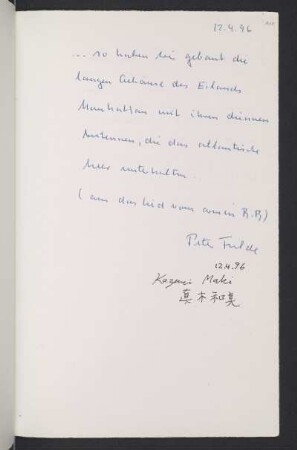 12.4.96
... so haben wir gebaut die
langen Gehäuse des Eilands
Manhattan mit ihren dünnen
Antennen, die das atlantische
Meer unterhalten.
(aus das Lied vom armen B.B)
Peter
12.4.96
Kazumi Maki
真木和美